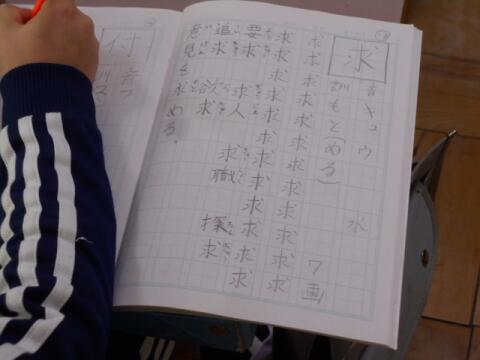 求
音キュウ 水
訓もと(める) 7画
求求求求求求求求求求求
求求求求求求求求求求求求
要求 求人 求職 探求
追求 欲求
意見を求める。
付
音フ
訓